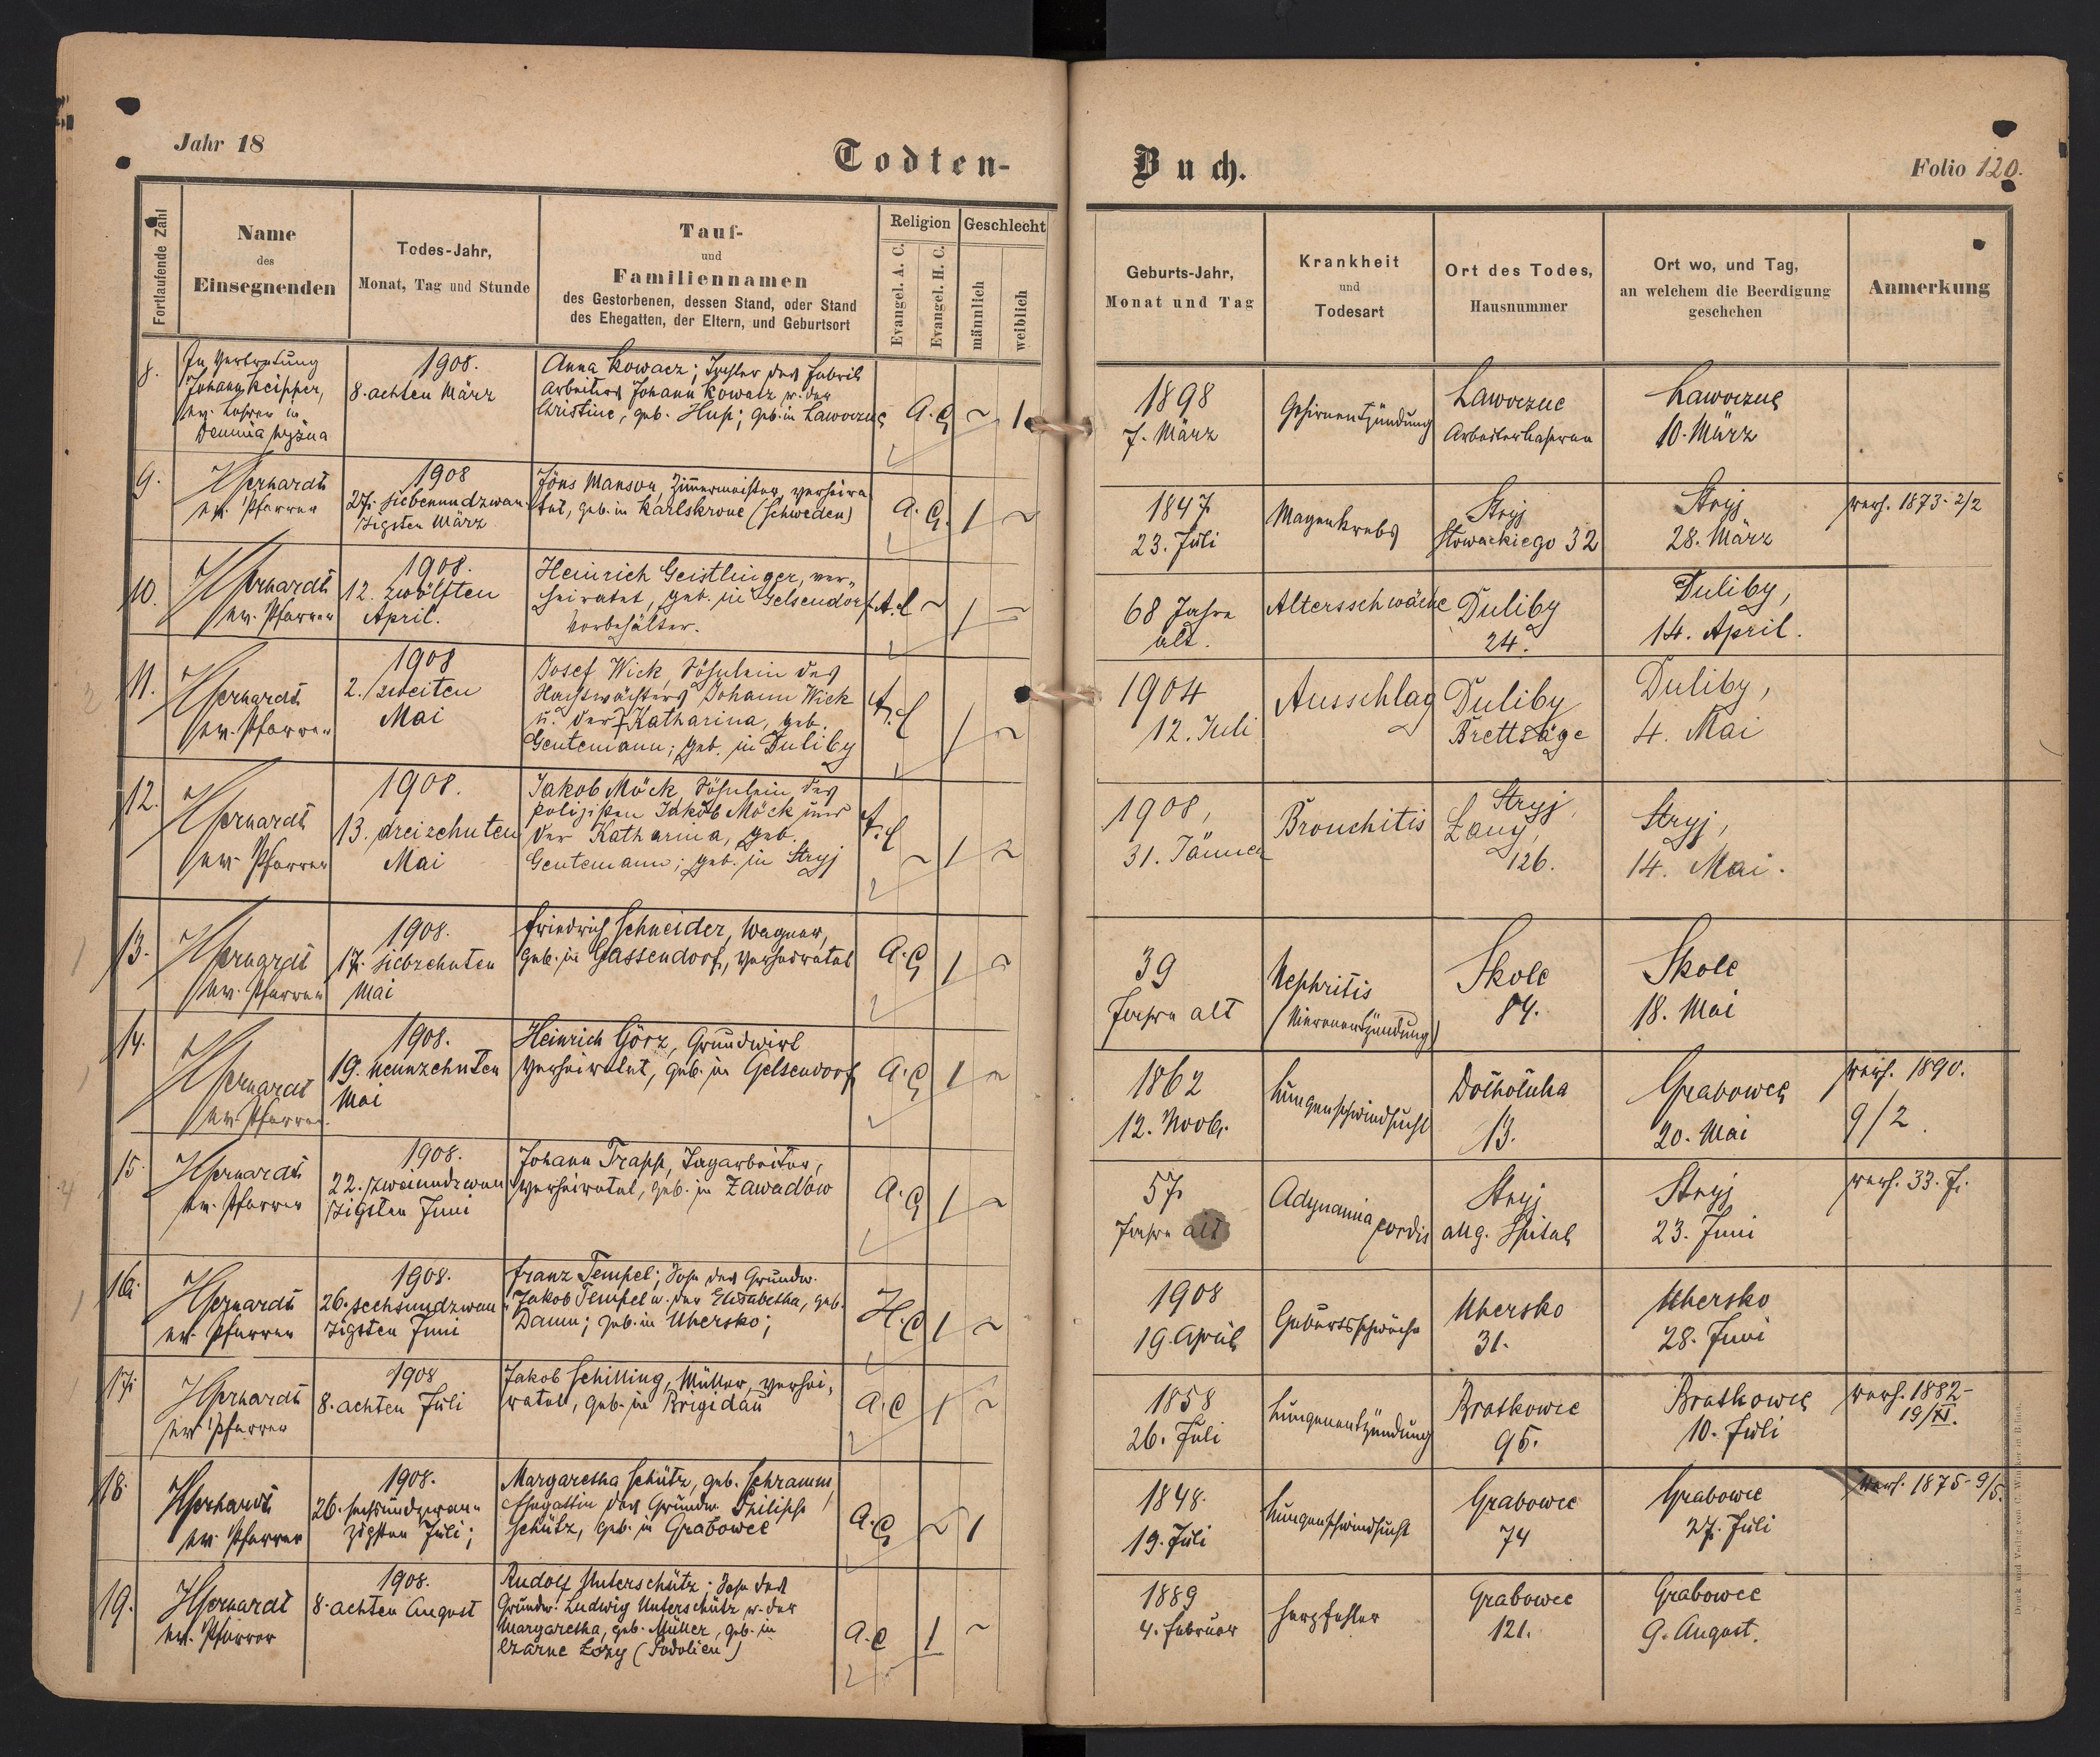 Jahr 18
Todten-
Buch.
Folio 120.
Fortlaufende Zahl
Name
des
Einsegnenden
Todes-Jahr,
Monat, Tag und Stunde
Tauf-
und
Familiennamen
des Gestorbenen, dessen Stand, oder Stand
des Ehegatten, der Eltern, und Geburtsort
Religion
Evangel. A. C.
Evangel. H. C.
Geschlecht
männlich
weiblich
Geburts-Jahr,
Monat und Tag
Krankheit
und
Todesart
Ort des Todes,
Hausnummer
Ort wo, und Tag,
an welchem die Beerdigung
geschehen
Anmerkung
8.
In Vertretung
Johann Keipper,
ev. Lehrer in
Demnia wyżna
1908.
8. achten März
Anna Kowacz; Tochter des Fabrik
arbeiters Johann Kowacz u. der
Christine, geb. Huss; geb. in Lawoczne
A. C. ~ 1
1898
7. März
Gehirnentzündung
Lawoczne
Arbeiterkaserne
Lawoczne
10. März
9.
ev. Pfarrer
1908
27. siebenundzwan-
zigsten März
Jöns Manson, Zimmermeister, verheira-
tet, geb. in Karlskrone (Schweden)
A. C. 1 ~
1847
23. Juli
Magenkrebs
Stryj
Słowackiego 32
Stryj
28. März
verh. 1873- 2/2
10.
ev. Pfarrer
1908.
12. zwölften
April.
Heinrich Geistlinger, ver-
heiratet, geb. in Gelsendorf
Vorbehälter.
A. C ~ 1 ~
68 Jahre
alt.
Altersschwäche
Duliby
24.
Duliby,
14. April.
11.
ev. Pfarrer
1908
2. zweiten
Mai
Josef Wick, Söhnlein des
Nachtwächters Johann Wick
u. der Katharina, geb.
Gentemann; geb. in Duliby
A. C 1 ~
1904
12. Juli
Ausschlag
Duliby
Brettsäge
Duliby,
4. Mai
12.
ev. Pfarrer
1908.
13. dreizehnten
Mai
Jakob Möck, Söhnlein des
Polizisten Jakob Möck und
der Katharina, geb.
Gentemann; geb. in Stryj
A. C ~ 1 ~
1908,
31. Jänner
Bronchitis
Stryj,
Łany,
126.
Stryj,
14. Mai.
13.
ev. Pfarrer
1908.
17. siebzehnten
Mai
Friedrich Schneider, Wagner,
geb. in Gassendorf, verheiratet
A. C 1 ~
39
Jahre alt
Nephritis
(Nierenentzündung)
Skole
84.
Skole
18. Mai
14.
ev. Pfarrer.
1908.
19. neunzehnten
Mai
Heinrich Görz, Grundwirt
verheiratet, geb. in Gelsendorf
A. C 1 ~
1862
12. Novb.
Lungenschwindsucht
Dołhołuka
13.
Grabowce
20. Mai
verh. 1890.
9/2.
15.
ev. Pfarrer
1908.
22. zweiundzwan
zigsten Juni
Johann Trapp, Tagarbeiter,
verheiratet, geb. in Zawadów
A. C 1 ~
57
Jahre alt
Adynamia cordis
Stryj
allg. Spital
Stryj
23. Juni
verh. 33. J.
16.
ev. Pfarrer
1908.
26. sechsundzwan
zigsten Juni
Franz Tempel; Sohn des Grundw.
Jakob Tempel u. der Elisabetha, geb.
Damm; geb. in Uhersko;
H. C 1 ~
1908
19. April
Geburtsschwäche
Uhersko
31.
Uhersko
28. Juni
17.
ev. Pfarrer
1908
8. achten Juli
Jakob Schilling, Müller, verhei-
ratet, geb. in Brigidau
A. C 1 ~
1858
26. Juli
Lungenentzündung
Bratkowce
95.
Bratkowce
10. Juli
verh. 1882-
19/XI.
18.
ev. Pfarrer
1908.
26. sechsundzwan-
zigsten Juli;
Margaretha Schütz, geb. Schramm,
Ehegattin des Grundw. Philipp
Schütz, geb. in Grabowce
A. C ~ 1
1848.
19. Juli
Lungenschwindsucht
Grabowce
74
Grabowce
27. Juli
verh. 1875- 9/5.
19.
ev. Pfarrer
1908.
8. achten August
Rudolf Unterschütz; Sohn des
Grundw. Ludwig Unterschütz u. der
Margaretha, geb. Müller, geb. in
Czarne Łozy (Podolien)
A. C 1 ~
1889
4. Februar
Herzfehler
Grabowce
121.
Grabowce
9. August.